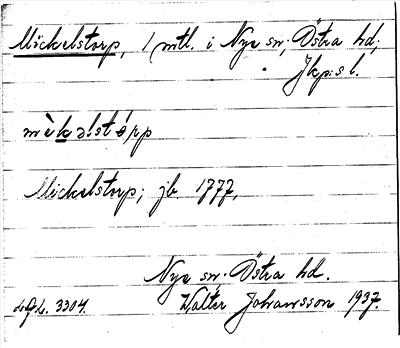 Mickelstorp, 1 mtl. i Nye sn; Östra hd;
Jkp:s l.
mèkəlstórp
Mickelstorp; jb 1777,
Nye sn. Östra hd.
3304. Walter Johansson 1937.